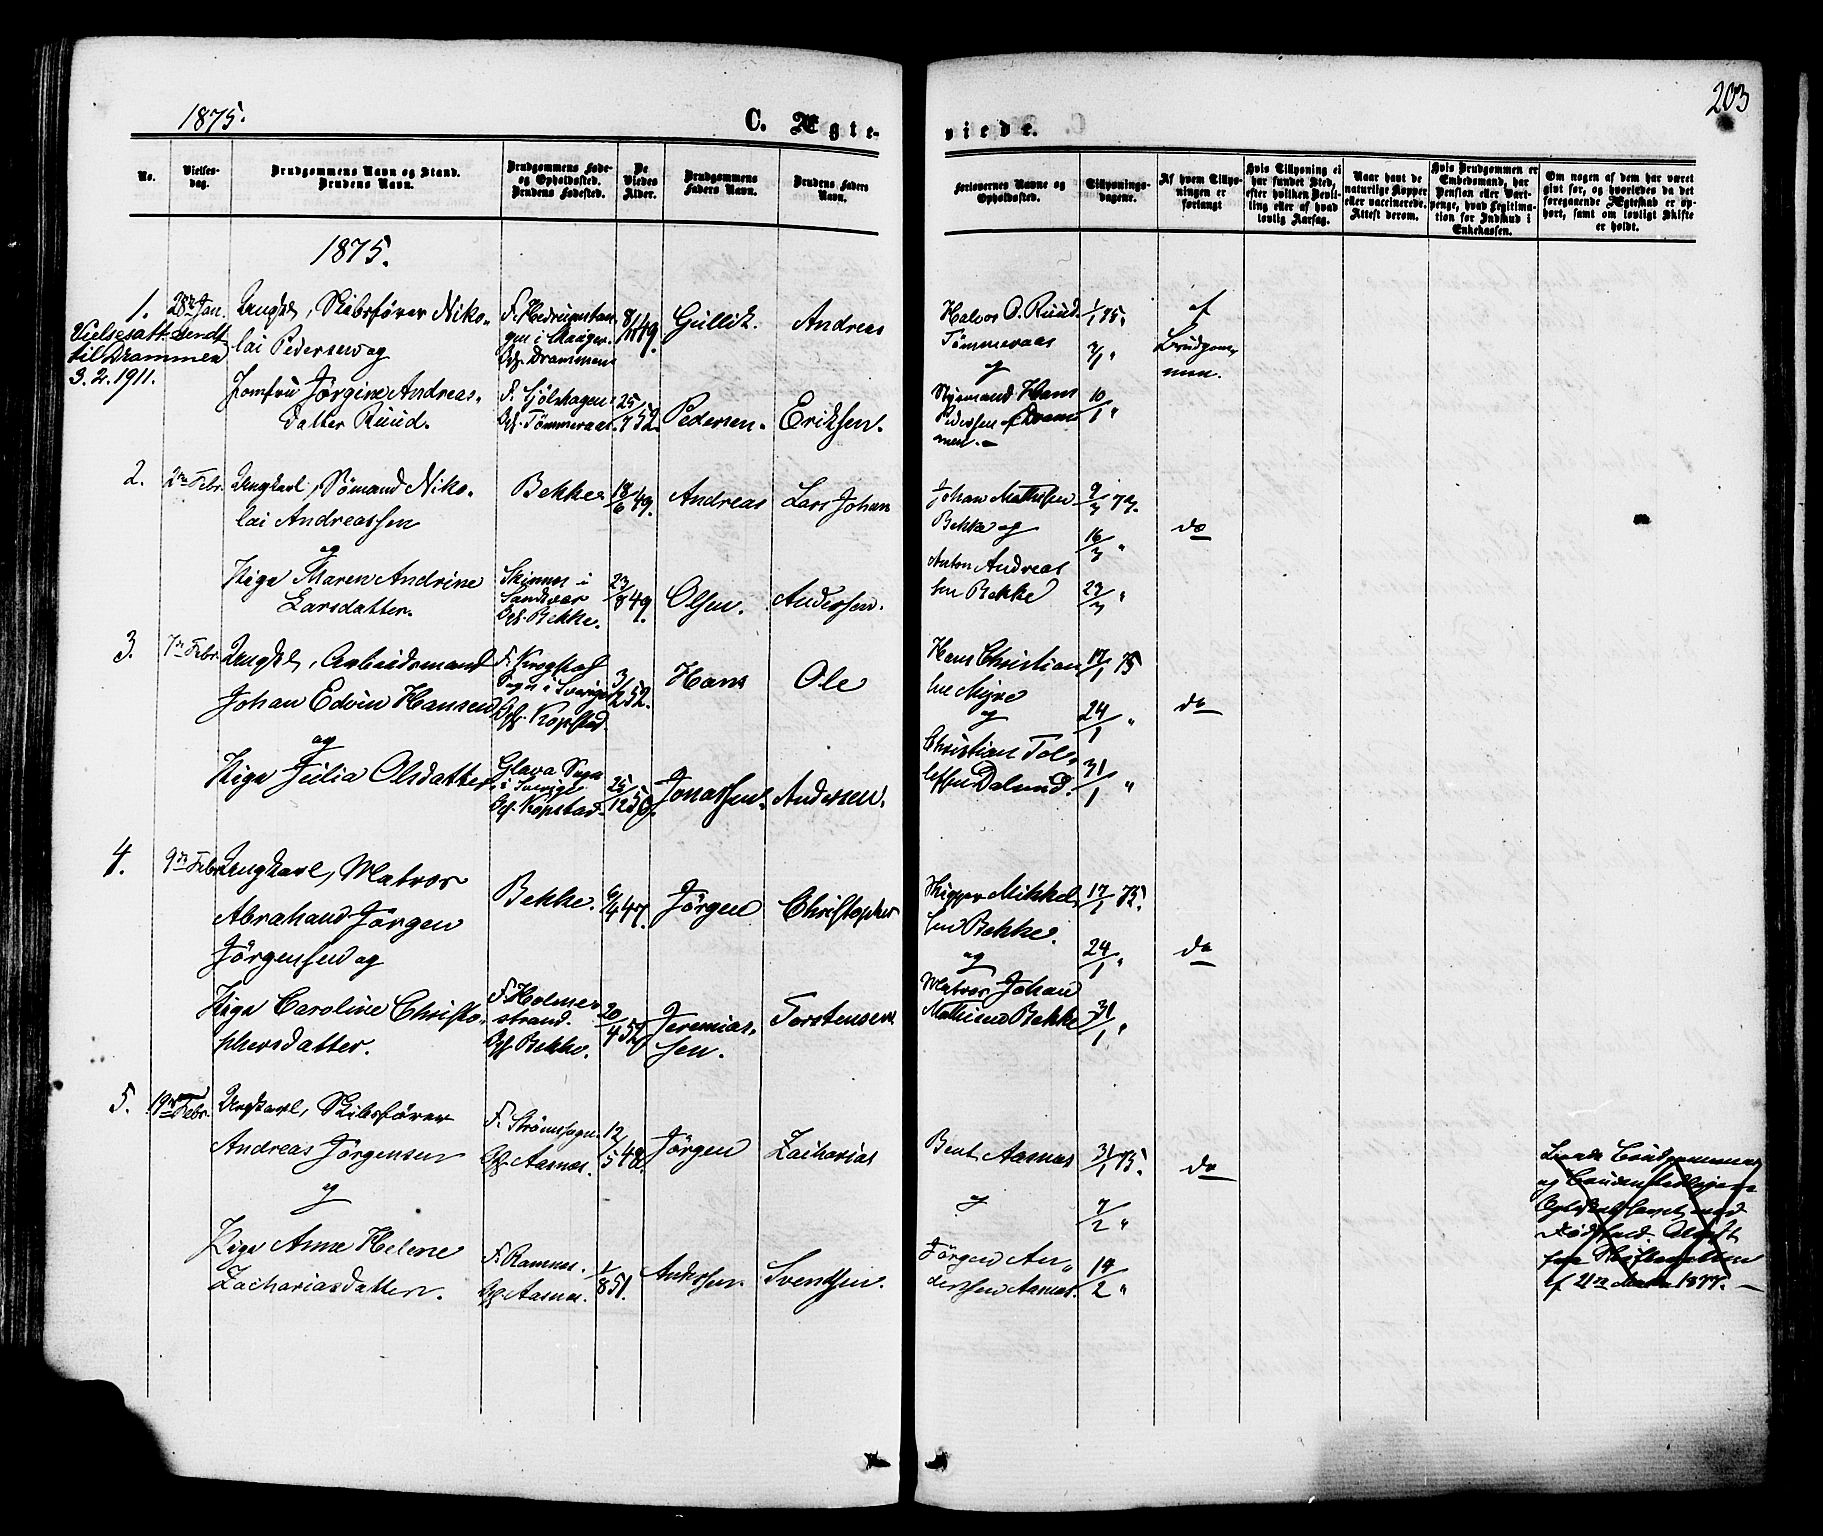 1875.
C. Ægte-
viede.
203
No.
Vielses-
dag.
Brudgommens Navn og Stand.
Brudens Navn.
Brudgommens Føde-
og Opholdssted.
Brudens Fødested.
De
Viedes
Alder.
Brudgommens
Faders Navn.
Brudens Faders
Navn.
Forlovernes Navne og
Opholdssted.
Tillysnings-
dagene.
Af hvem Tillys-
ningen er
forlangt
Hvis Tillysning ei
har fundet Sted,
efter hvilken Bevil-
ling eller af hvad
lovlig Aarsag.
Naar havt de
naturlige Kopper
eller vaccinerede.
Attest derom.
Hvis Brudgommen er
Embedsmand, har
Pension eller Vart-
penge, hvad Legitima-
tion for Indskud i
Enkekassen.
Om nogen af dem har været
gift før, og hvorledes da det
foregaaende Ægteskab er op-
hørt, samt om lovligt Skifte
er holdt.
1875.
1.
Vielsesatt. sendt
til Drammen
3.2.1911.
28de Jan.
Ungkl, Skibsfører Niko-
lai Pedersen og
Jomfru Jørgine Andreas-
datter Ruud.
Drammen
Tømmeraas
8/ 49.
25/ 52.
Gullik
Pedersen.
Andreas
Eriksen.
Halvor O. Ruud
Tømmeraas
og
Styrmand Hans
Pedersen Dram
men.
1/1 75.
3/1 "
10/1 "
af
Brudgom-
men.
2.
2den Febr.
Ungkarl, Sømand Niko-
lai Andreassen
og
Pige Maren Andrine
Larsdatter.
Bekke
Skinnes i
Sandsvær
Bekke.
18/6 49.
23/8 49.
Andreas
Olsen.
Lars Johan
Andersen.
Johan Mathisen
Bekke og
Anton Andreas
sen Bekke
do
3.
7de Febr.
Ungkl, Arbeidsmand
Johan Edvin Hansen
og
Pige Julia Olsdatter
F. Krogstad
Sogn i Sverige
Kopstad.
Glava Sogn
i Sverige
Kopstad.
3/2 52.
25/12 50.
Hans
Jonassen.
Ole
Andersen.
Hans Christian
sen Myre
og
Christian Tol-
lefsen Dalund.
17/1 75
24/1 "
31/1 "
do
4.
9de Febr.
Ungkarl, Matros
Abraham Jørgen
Jørgensen og
Pige Caroline Christo-
phersdatter.
Bekke.
F. Holme-
strand.
Bekke.
6/4 47.
20/4 52.
Jørgen
Jeremias-
sen.
Christopher
Torstensen
Skipper Mikkel
sen Bekke.
og
Matros Johan
Mathisen Bekke
17/1 75.
24/1 "
31/1 "
do
5.
19de Febr.
Ungkarl, Skibsfører
Andreas Jørgensen
og
Pige Anne Helene
Zachariasdatter.
Aasnes.
F. Ramnes.
Aasnes.
12/5 48.
1/8 51.
Jørgen
Anderssen
Zacharias
Svendsen.
Bent Aasnes
og
Jørgen An-
derssen Aasnes.
31/1 75.
7/2 "
14/2 "
do